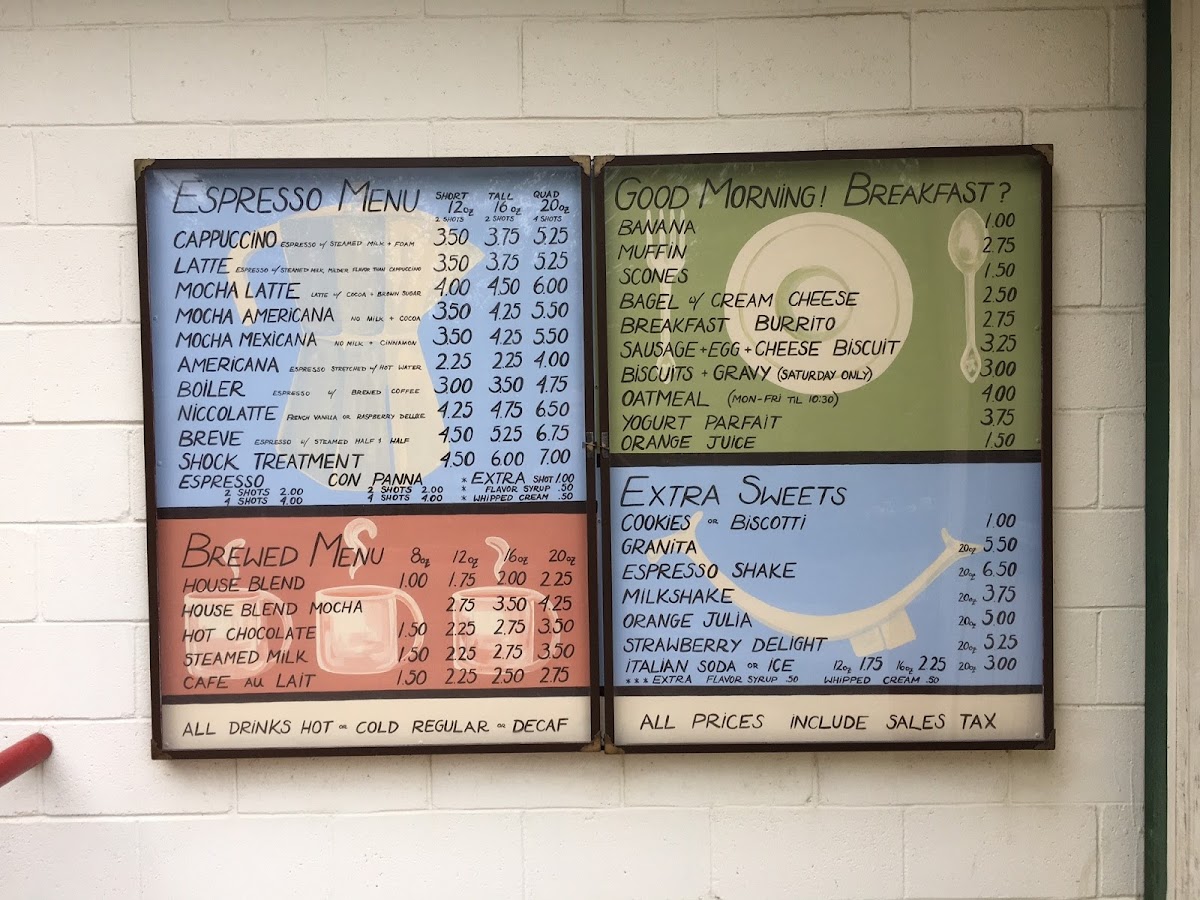 ESPRESSO MENU SHORT TALL QUAD
12oz 16oz 20oz
2 SHOTS 2 SHOTS 4 SHOTS
CAPPUCCINO ESPRESSO w/ STEAMED MILK + FOAM 3.50 3.75 5.25
LATTE ESPRESSO w/ STEAMED MILK, MILDER FLAVOR THAN CAPPUCCINO 3.50 3.75 5.25
MOCHA LATTE LATTE w/ COCOA + BROWN SUGAR 4.00 4.50 6.00
MOCHA AMERICANA NO MILK + COCOA 3.50 4.25 5.50
MOCHA MEXICANA NO MILK + CINNAMON 3.50 4.25 5.50
AMERICANA ESPRESSO STRETCHED w/ HOT WATER 2.25 2.25 4.00
BOILER ESPRESSO w/ BREWED COFFEE 3.00 3.50 4.75
NICCOLATTE FRENCH VANILLA OR RASPBERRY DELUXE 4.25 4.75 6.50
BREVE ESPRESSO w/ STEAMED HALF & HALF 4.50 5.25 6.75
SHOCK TREATMENT 4.50 6.00 7.00
ESPRESSO CON PANNA * EXTRA SHOT 1.00
2 SHOTS 2.00 2 SHOTS 2.00 * FLAVOR SYRUP .50
4 SHOTS 4.00 4 SHOTS 4.00 * WHIPPED CREAM .50
BREWED MENU 8oz 12oz 16oz 20oz
HOUSE BLEND 1.00 1.75 2.00 2.25
HOUSE BLEND MOCHA 2.75 3.50 4.25
HOT CHOCOLATE 1.50 2.25 2.75 3.50
STEAMED MILK 1.50 2.25 2.75 3.50
CAFE AU LAIT 1.50 2.25 2.50 2.75
ALL DRINKS HOT OR COLD REGULAR OR DECAF
GOOD MORNING! BREAKFAST?
BANANA 1.00
MUFFIN 2.75
SCONES 1.50
BAGEL w/ CREAM CHEESE 2.50
BREAKFAST BURRITO 2.75
SAUSAGE + EGG + CHEESE BISCUIT 3.25
BISCUITS + GRAVY (SATURDAY ONLY) 3.00
OATMEAL (MON-FRI TIL 10:30) 4.00
YOGURT PARFAIT 3.75
ORANGE JUICE 1.50
EXTRA SWEETS
COOKIES OR BISCOTTI 1.00
GRANITA 20oz 5.50
ESPRESSO SHAKE 20oz 6.50
MILKSHAKE 20oz 3.75
ORANGE JULIA 20oz 5.00
STRAWBERRY DELIGHT 20oz 5.25
ITALIAN SODA OR ICE 12oz 1.75 16oz 2.25 20oz 3.00
*** EXTRA FLAVOR SYRUP .50 WHIPPED CREAM .50
ALL PRICES INCLUDE SALES TAX